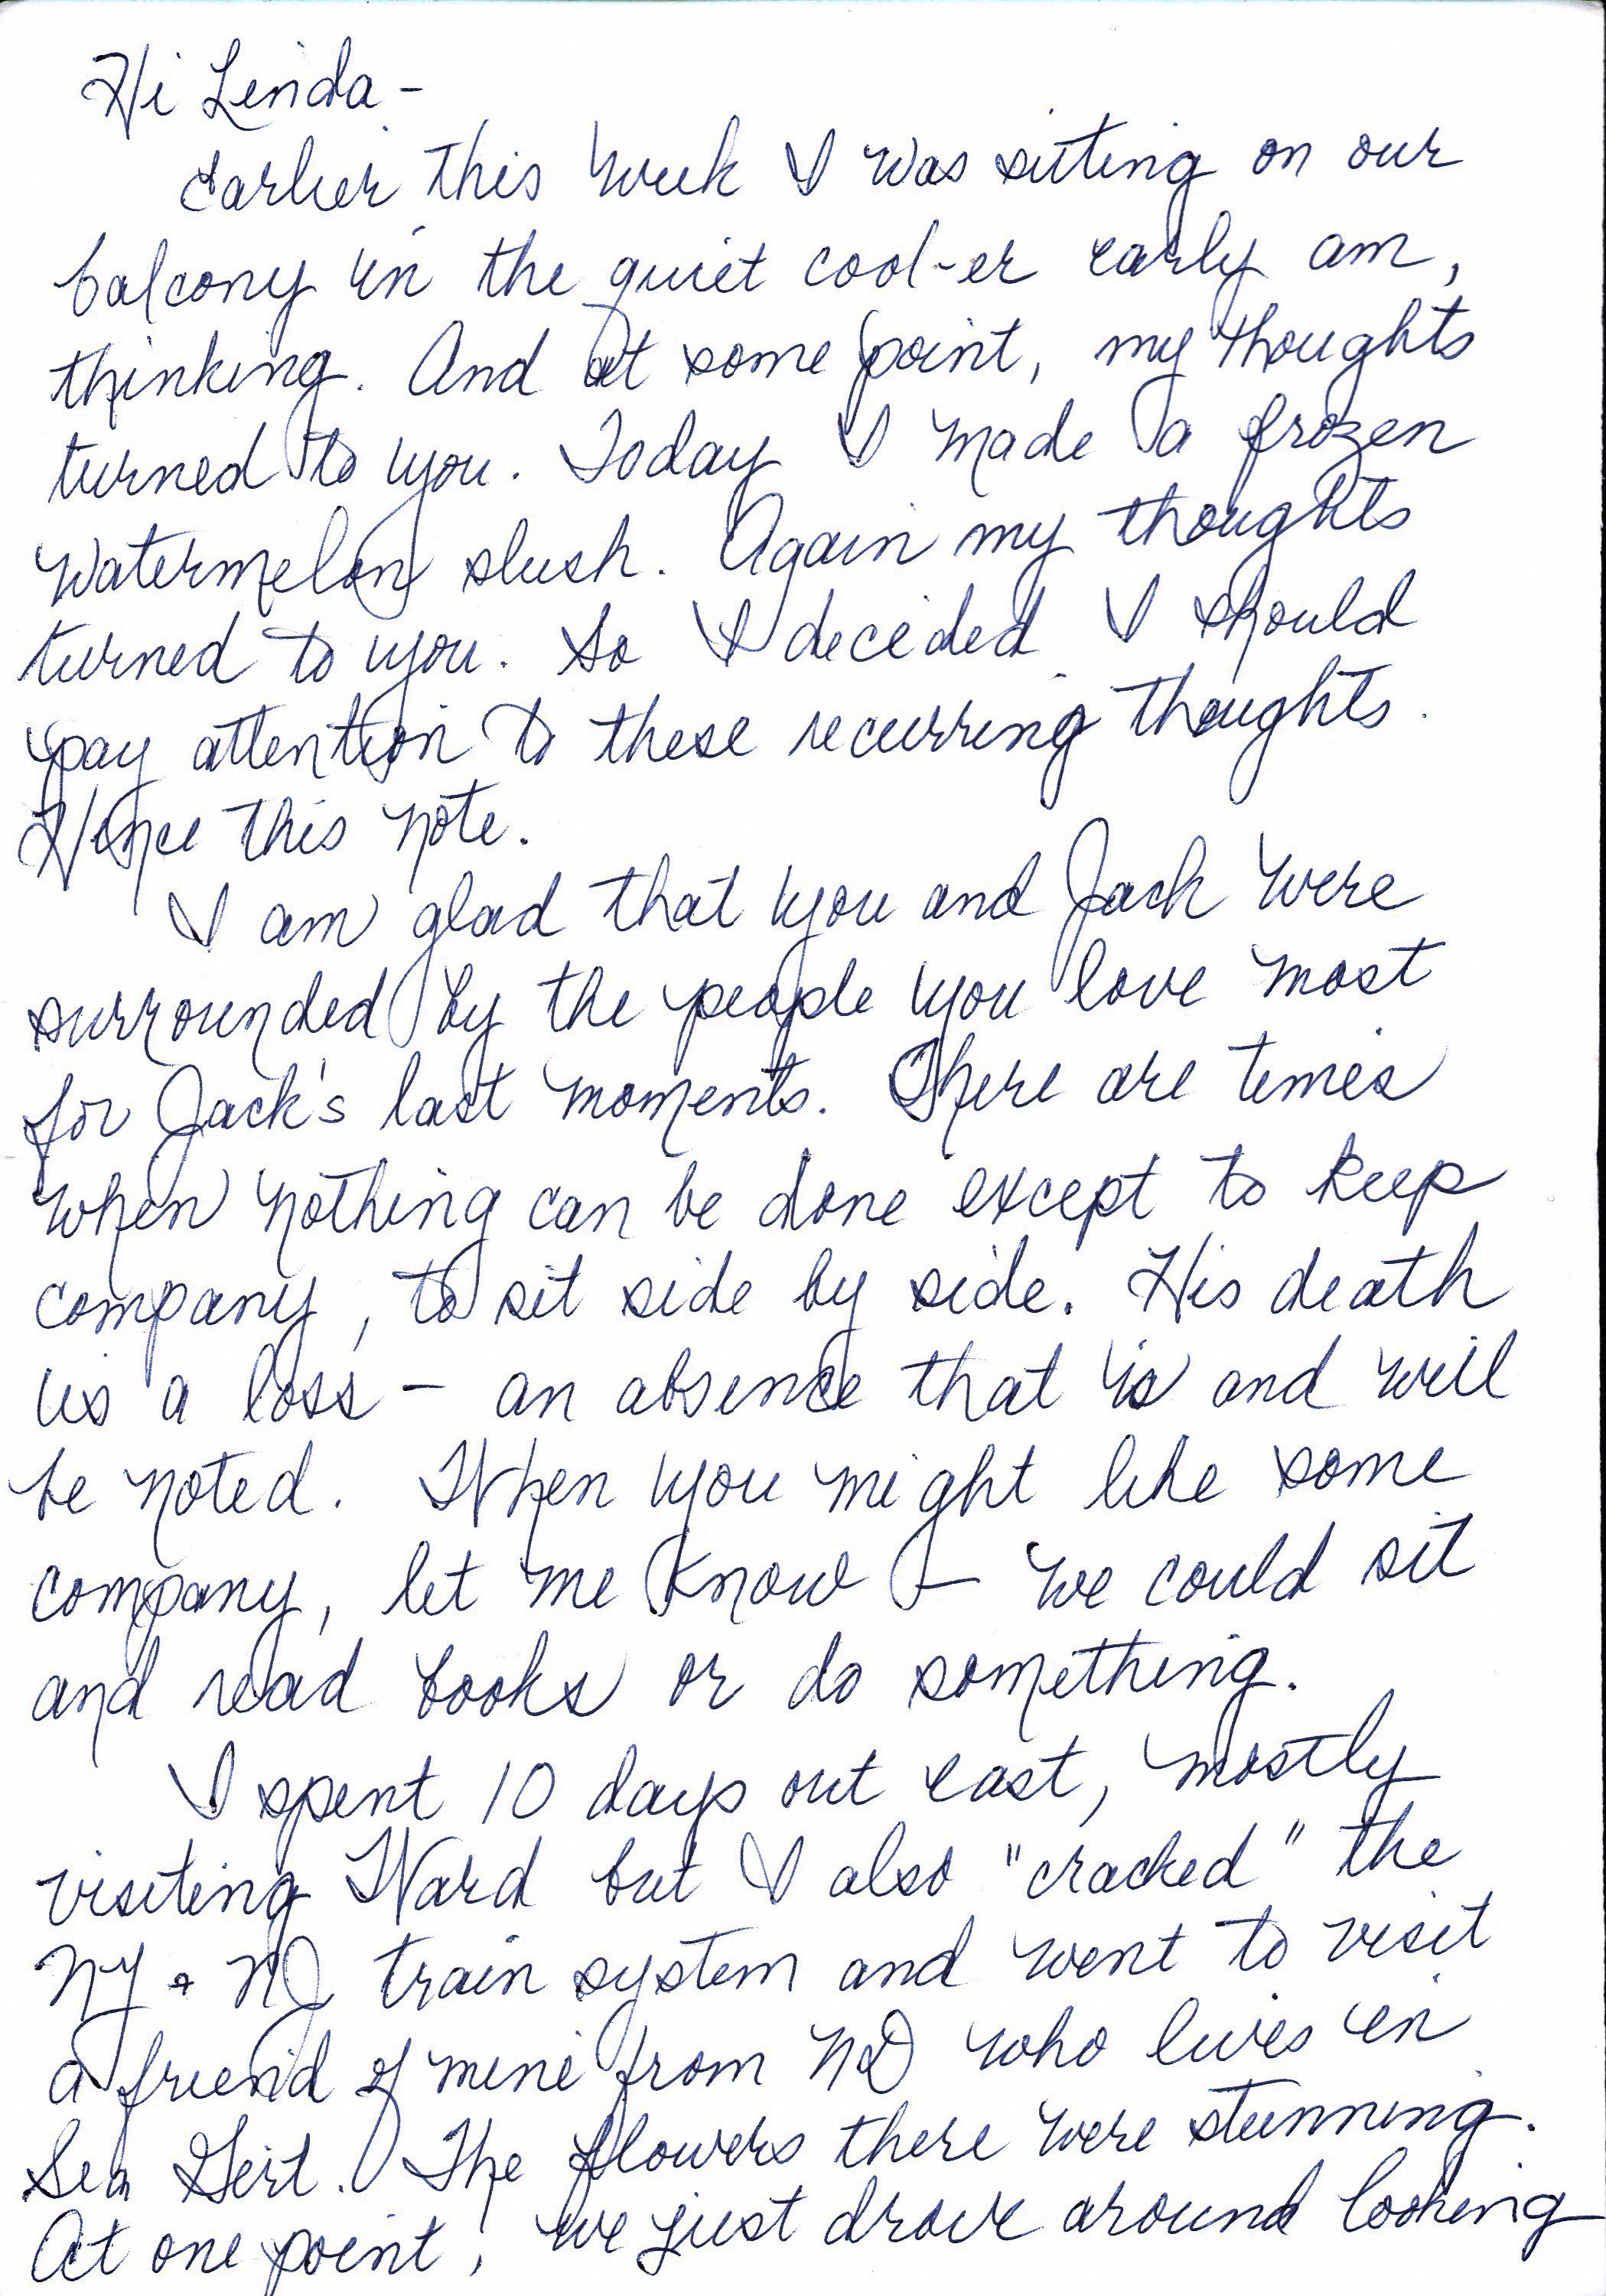 Hi Linda -
Earlier this week I was sitting on our
balcony in the quiet cool-er early am,
thinking. And at some point, my thoughts
turned to you. Today I made a frozen
watermelon slush. Again my thoughts
turned to you. So I decided I should
pay attention to these recurring thoughts.
Hence this note.
I am glad that you and Jack were
surrounded by the people you love most
for Jack's last moments. There are times
when nothing can be done except to keep
company, to sit side by side. His death
is a loss - an absence that is and will
be noted. When you might like some
company, let me know - we could sit
and read books or do something.
I spent 10 days out east, mostly
visiting Ward but I also "cracked" the
NY + NJ train system and went to visit
a friend of mine from ND who lives in
Sea Girt. The flowers there were stunning.
At one point, we just drove around looking